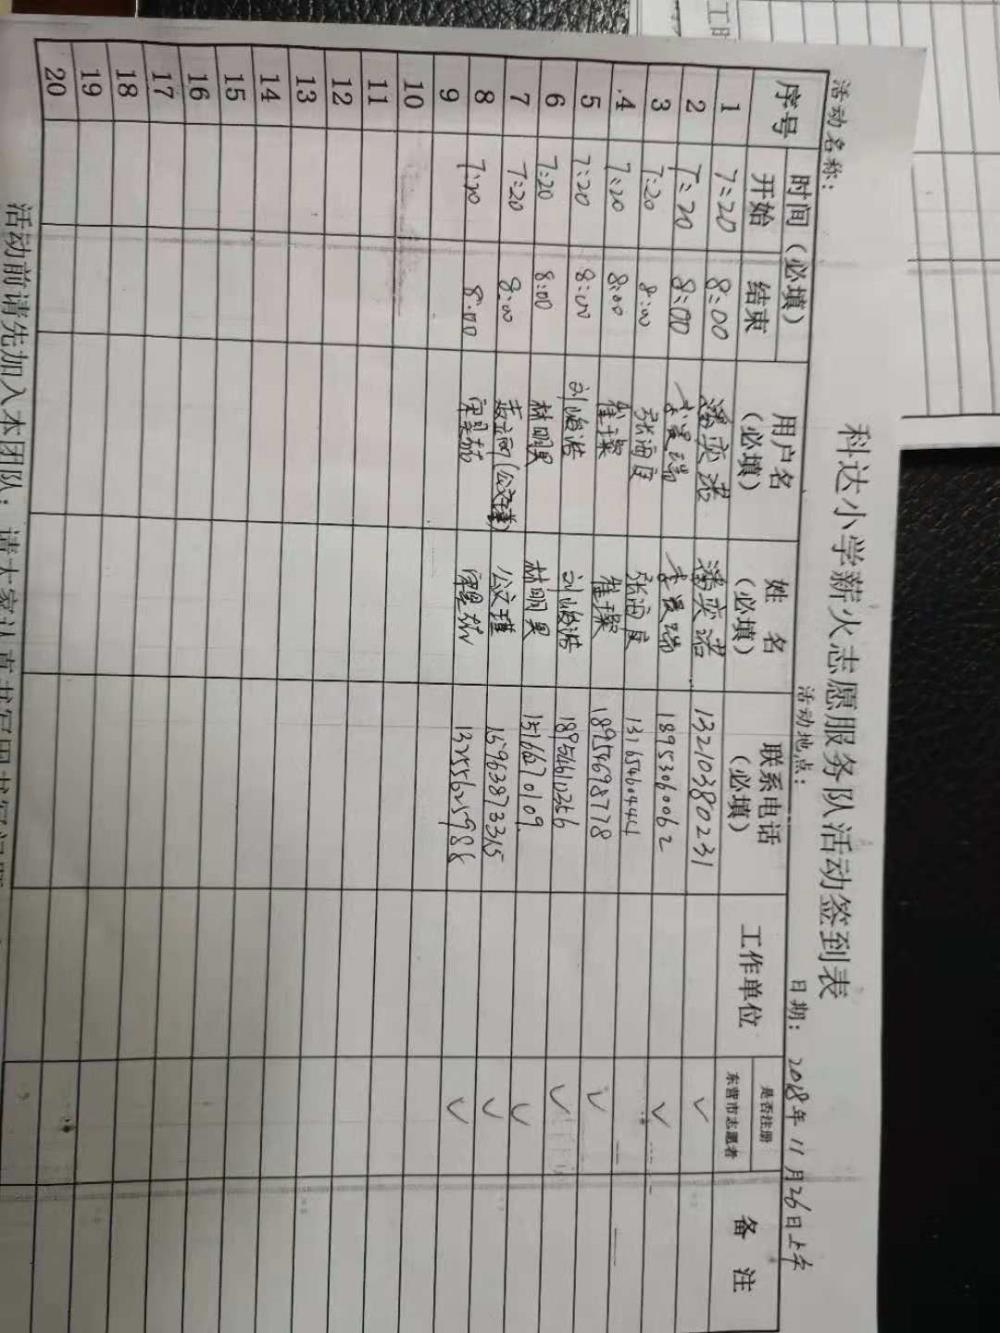 科达小学薪火志愿服务队活动签到表
活动名称： 活动地点： 日期：2018年11月26日上午
序号 时间（必填） 用户名（必填） 姓名（必填） 联系电话（必填） 工作单位 是否注册东营市志愿者 备注
开始 结束
1 7:20 8:00 潘奕诺 潘奕诺 13210380231 ✓
2 7:20 8:00 李昊瑞 李昊瑞 18953060062 ✓
3 7:20 8:00 张海良 张海良 13165460444
4 7:20 8:00 崔璨 崔璨 18954698778 ✓
5 7:20 8:00 刘峻浩 刘峻浩 18954610356 ✓
6 7:20 8:00 林明昊 林明昊 15166270109 ✓
7 7:20 8:00 (公文瑾) 公文瑾 15963873315 ✓
8 7:20 8:00 13255625988 ✓
9
10
11
12
13
14
15
16
17
18
19
20
活动前请先加入本团队；请大家认真书写